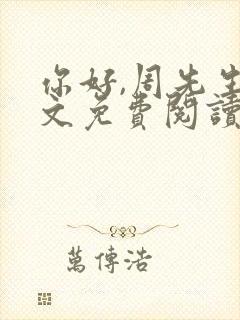 你好,周先生
文免費閱讀
萬傳浩